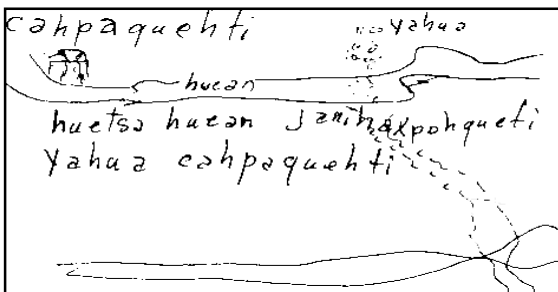 cahpaquehti
yahua
huean
huetsa huean janin axpohqueti
yahua cahpaquehti